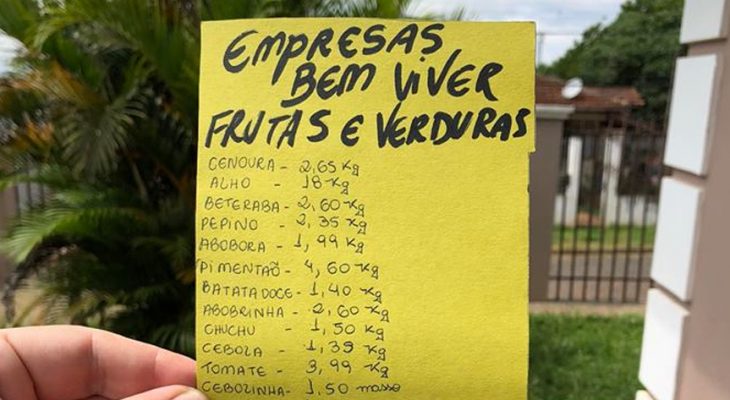 EMPRESAS
BEM VIVER
FRUTAS E VERDURAS
CENOURA - 2,65 Kg
ALHO - 18 Kg
BETERABA - 2,60 Kg
PEPINO - 2,35 Kg
ABOBORA - 1,99 Kg
PIMENTÃO - 4,60 Kg
BATATA DOCE - 1,40 Kg
ABOBRINHA - 2,60 Kg
CHUCHU - 1,50 Kg
CEBOLA - 1,39 Kg
TOMATE - 3,99 Kg
CEBOZINHA - 1,50 masso